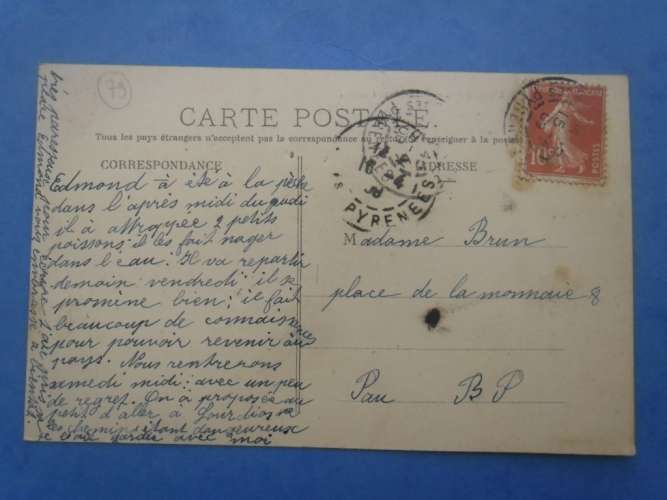 79
CARTE POSTALE
Tous les pays étrangers n'acceptent pas la correspondance au recto. Se renseigner à la poste
CORRESPONDANCE
ADRESSE
Edmond à été à la pêche
dans l'après midi du jeudi
il à attrapée 2 petits
poissons il les fait nager
dans l'eau. Il va repartir
demain vendredi il se
promène bien; il fait
beaucoup de connaissances
pour pouvoir revenir au
pays. Nous rentrerons
samedi midi: avec un peu
de regret. On à proposée au
petit d'aler à Lourdios
les chemins étant dangeureux
je l'ai gardée avec moi
très paresseux pour écrire
Edmond vous embrasse
Madame Brun
place de la monnaie 8
Pau BP
PYRENEES
10
POSTES